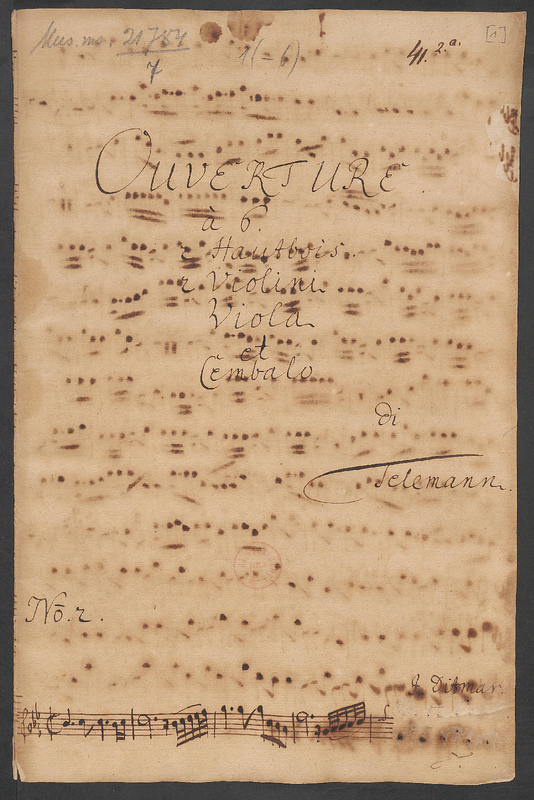 Mus. ms. 21784
7
1(-6)
41. 2.a.
[1]
OUVERTURE
à 6.
2 Hautbois.
2 Violini
Viola
et
Cembalo
di
Telemann.
No. 2.
J. Ditmar